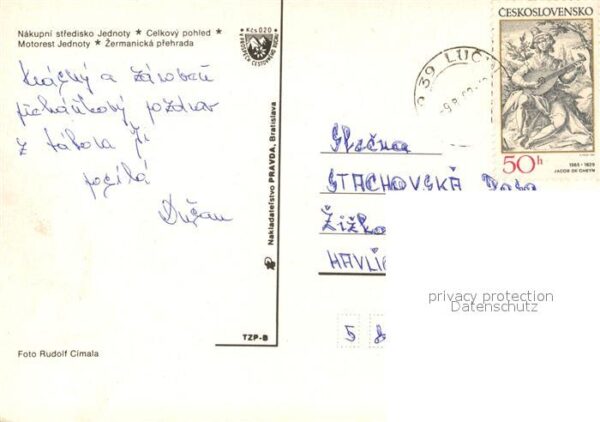 Nákupní středisko Jednoty * Celkový pohled *
Motorest Jednoty * Žermanická přehrada
Kčs 020
Krátký a zároveň
pozdrav
z tábora Ti
posílá
Dušan
Nakladatelství PRAVDA, Bratislava
TZP-B
Foto Rudolf Cimala
739 LUČI
ČESKOSLOVENSKO
50h
1565 - 1629
JACOB DE GHEYN
Slečna
STACHOVSKÁ
Žižko
HAVLÍČ
5 8
privacy protection
Datenschutz